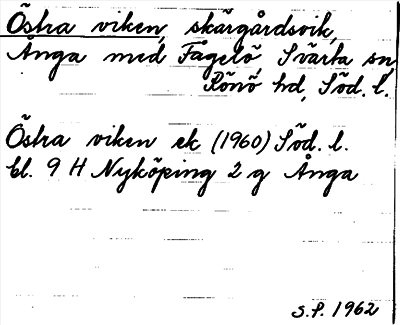 Östra viken, skärgårdsvik,
Ånga med Fågelö, Svärta sn,
Rönö hd, Söd. l.
Östra viken ek (1960) Söd. l.
bl. 9 H Nyköping 2 g Ånga
S.P. 1962